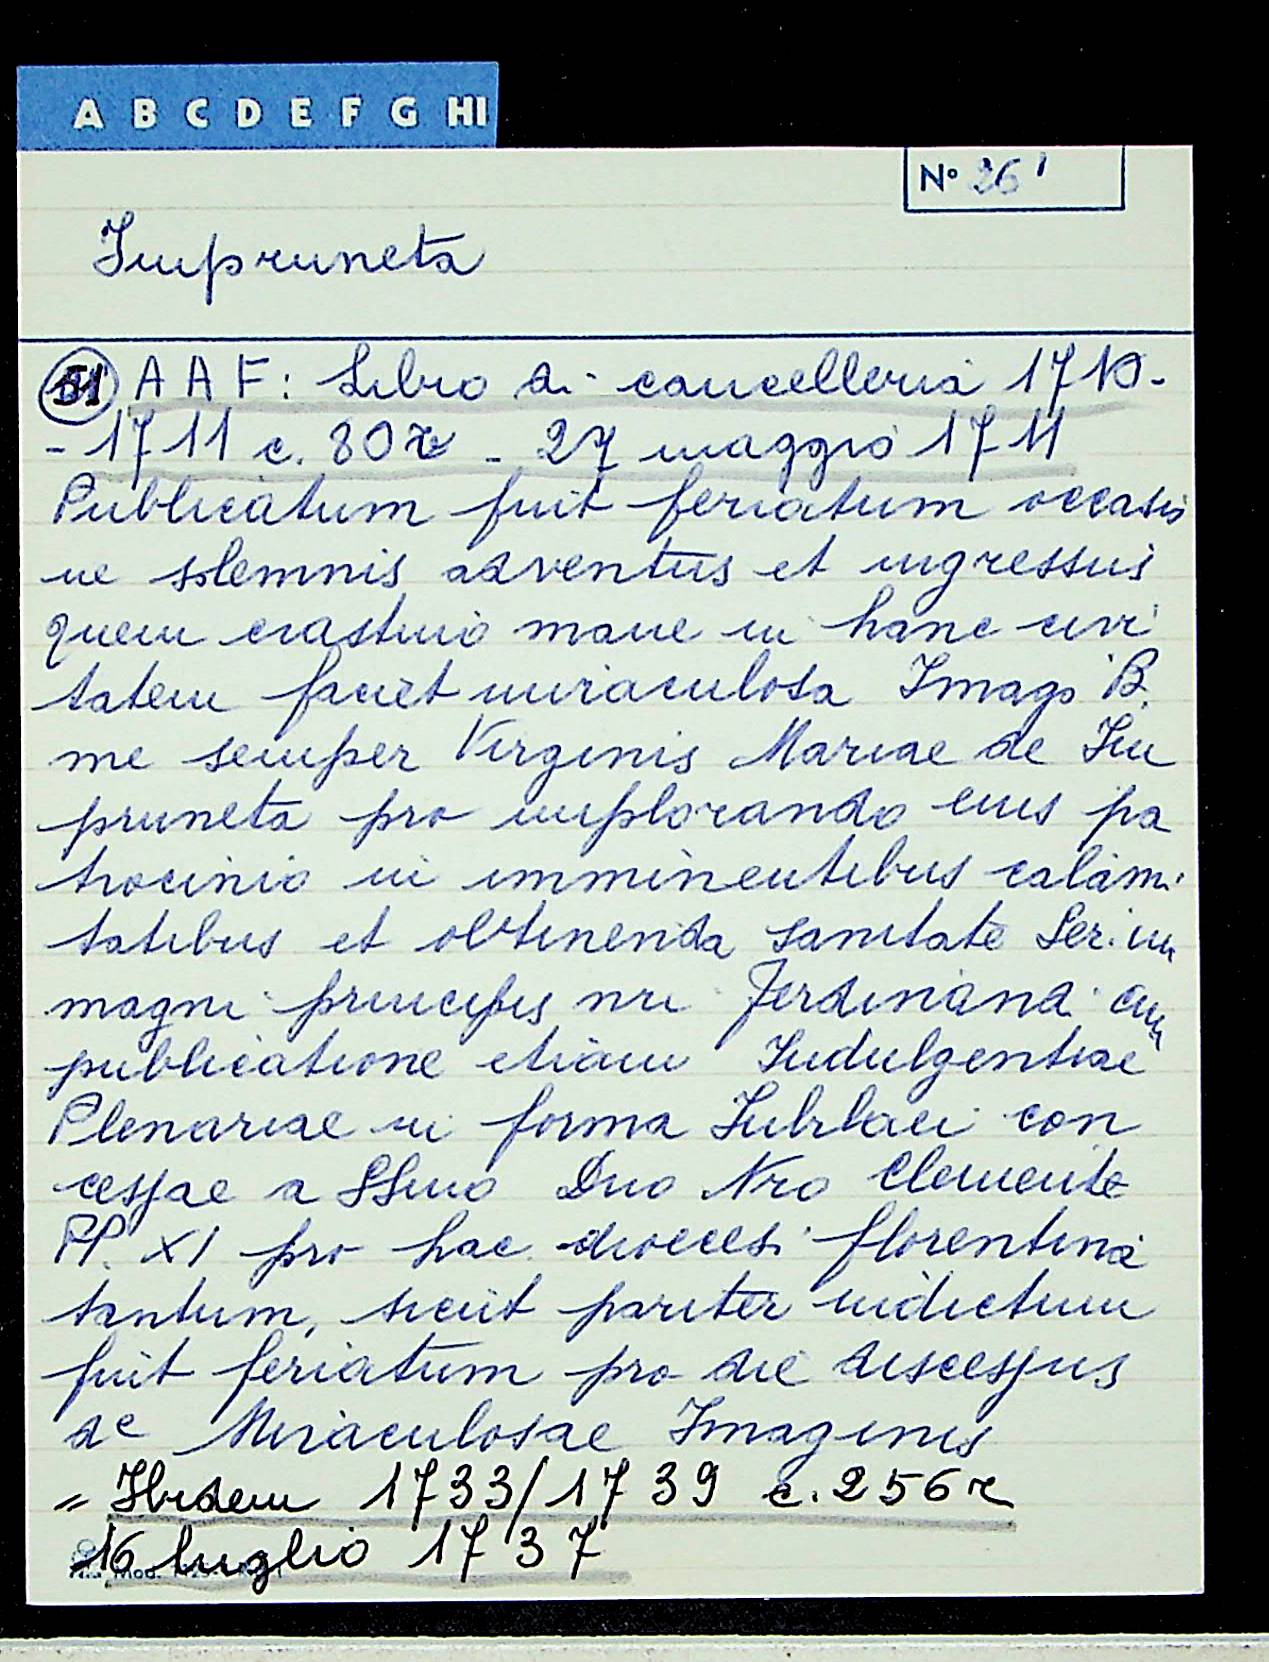 A B C D E F G HI
N° 26'
Impruneta
51 A A F: Libro di cancelleria 1710-
- 1711 c. 80r - 27 maggio 1711
Publicatum fuit feriatum occasio
ne solemnis adventus et ingressus
quem crastino mane in hanc civi
tatem faciet miraculosa Imago B.
me semper Virginis Mariae de Im
pruneta pro implorando eius pa
trocinio in imminentibus calami
tatibus et obtinenda sanitate Ser.im
magni principis nri Ferdinandi cum
publicatione etiam Indulgentiae
Plenariae in forma Iubilaei con
cessae a SSmo Dno Nro Clemente
PP. XI pro hac diocesi florentina
tantum, sicut pariter indictum
fuit feriatum pro die discessus
de Miraculosae Imaginis
= Ibidem 1733/1739 c. 256r
16 luglio 1737